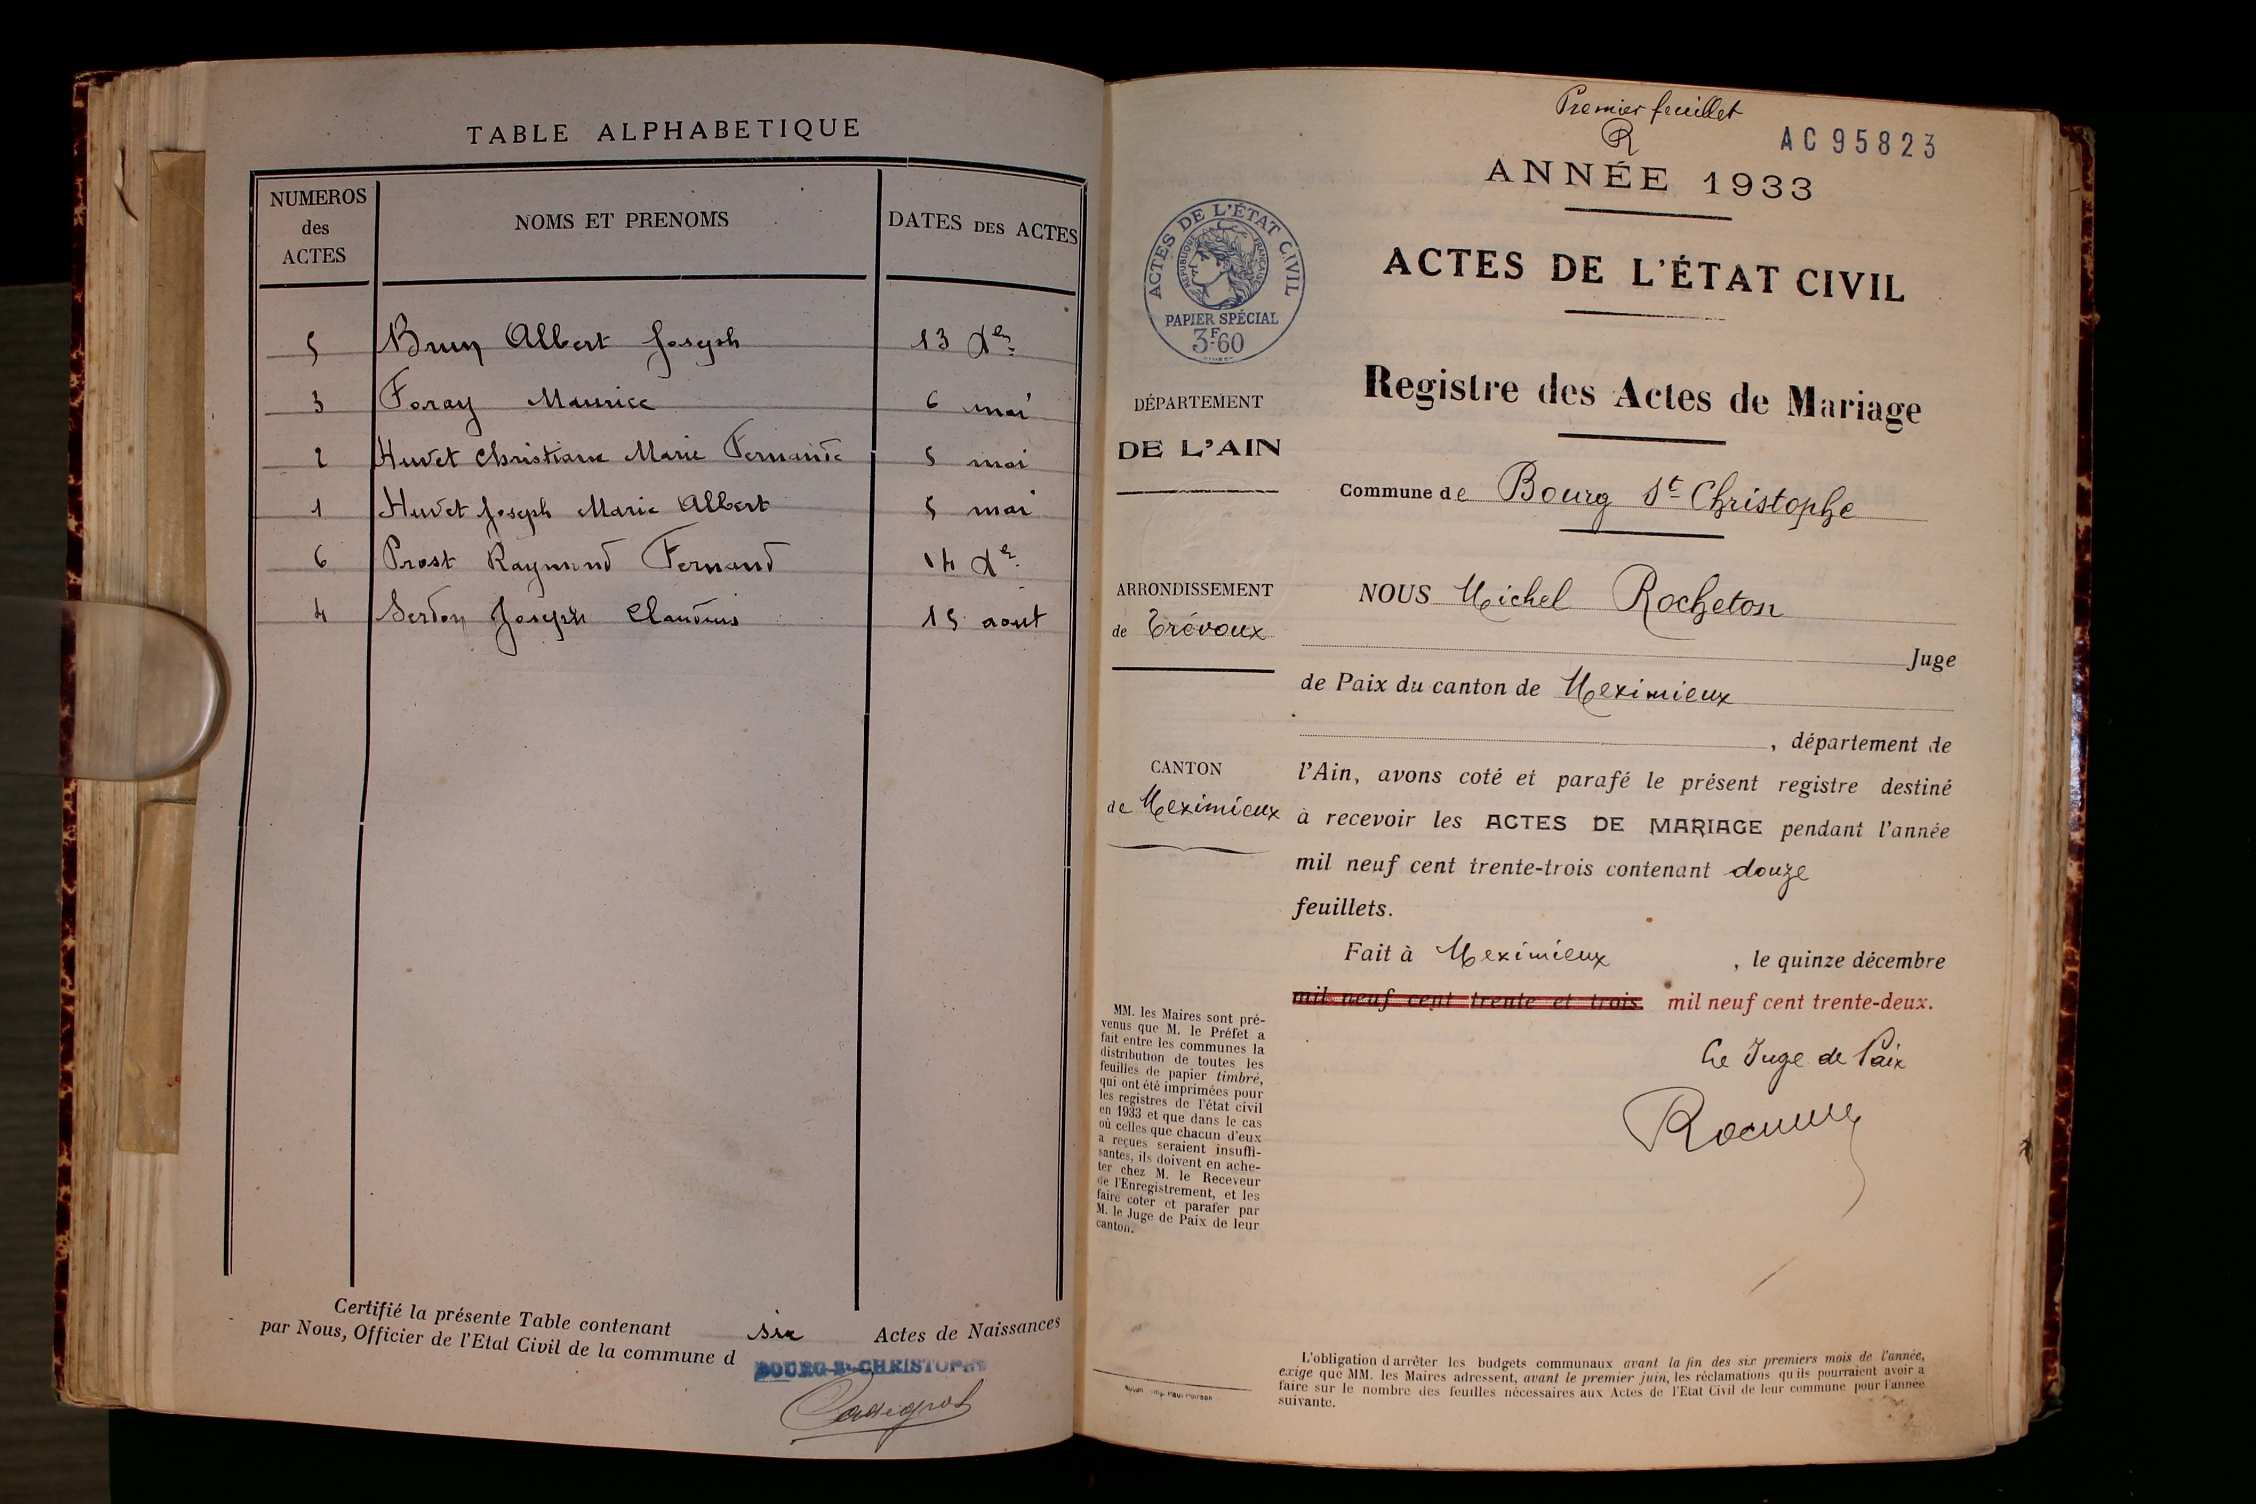 TABLE ALPHABETIQUE
NUMEROS des ACTES
NOMS ET PRENOMS
DATES DES ACTES
5 Brun Albert Joseph 13 Xbre
3 Foray Maurice 6 mai
2 Huvet Christiane Marie Fernande 5 mai
1 Huvet Joseph Marie Albert 5 mai
6 Prost Raymond Fernand 14 Xbre
4 Serdon Joseph Claudius 15 aout
Certifié la présente Table contenant six Actes de Naissances
par Nous, Officier de l'Etat Civil de la commune d BOURG-St-CHRISTOPHE
Premier feuillet
R
AC 95823
ANNÉE 1933
ACTES DE L'ÉTAT CIVIL
Registre des Actes de Mariage
Commune de Bourg St Christophe
ACTES DE L'ÉTAT CIVIL
RÉPUBLIQUE FRANÇAISE
PAPIER SPÉCIAL
3F60
DÉPARTEMENT
DE L'AIN
ARRONDISSEMENT
de Trévoux
CANTON
de Meximieux
NOUS Michel Rocheton
Juge
de Paix du canton de Meximieux
, département de
l'Ain, avons coté et parafé le présent registre destiné
à recevoir les ACTES DE MARIAGE pendant l'année
mil neuf cent trente-trois contenant douze
feuillets.
Fait à Meximieux , le quinze décembre
mil neuf cent trente et trois mil neuf cent trente-deux.
Le Juge de Paix
MM. les Maires sont pré-
venus que M. le Préfet a
fait entre les communes la
distribution de toutes les
feuilles de papier timbré,
qui ont été imprimées pour
les registres de l'état civil
en 1933 et que dans le cas
où celles que chacun d'eux
a reçues seraient insuffi-
santes, ils doivent en ache-
ter chez M. le Receveur
de l'Enregistrement, et les
faire coter et parafer par
M. le Juge de Paix de leur
canton.
L'obligation d'arrêter les budgets communaux avant la fin des six premiers mois de l'année,
exige que MM. les Maires adressent, avant le premier juin, les réclamations qu'ils pourraient avoir a
faire sur le nombre des feuilles nécessaires aux Actes de l'Etat Civil de leur commune pour l'année
suivante.